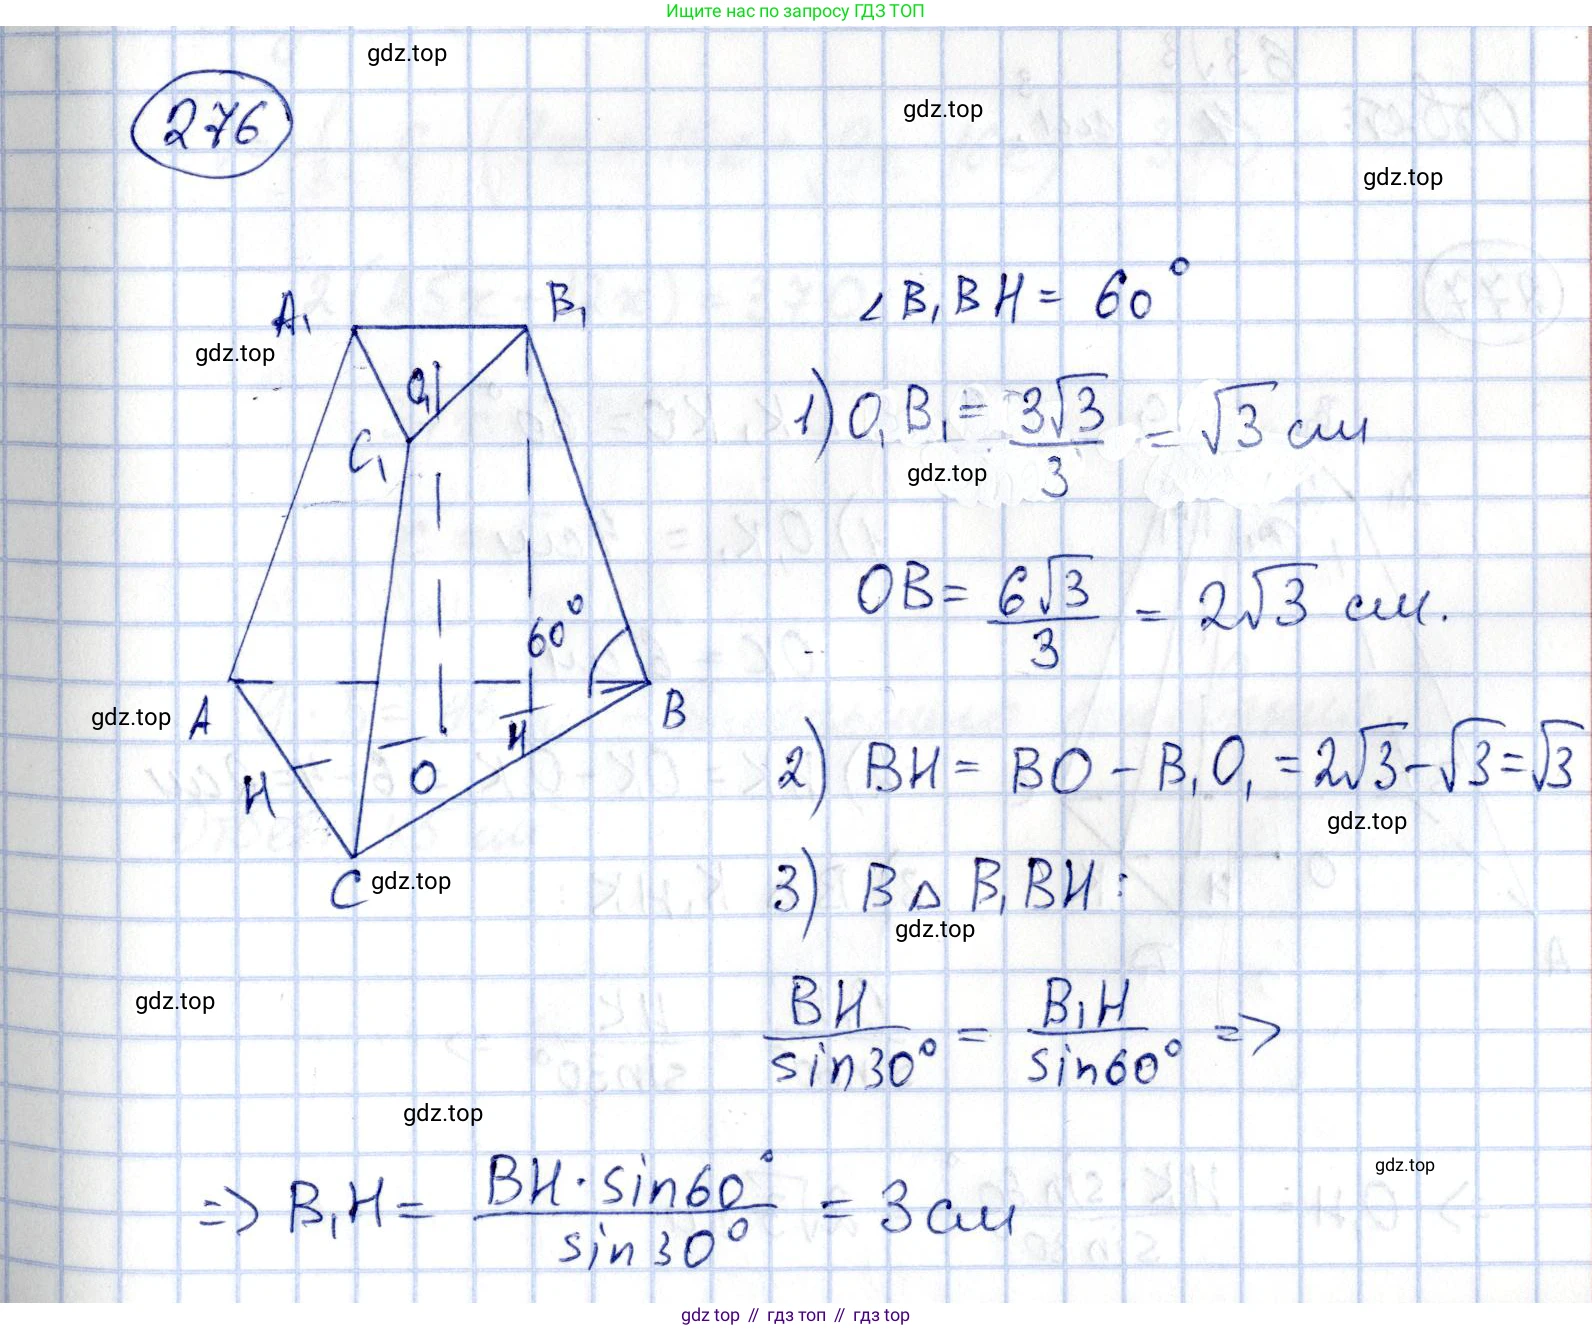 Ищите нас по запросу ГДЗ ТОП
gdz.top
276
gdz.top
gdz.top
A₁ B₁
∠B₁BH = 60°
gdz.top
O₁
C₁
1) O₁B₁ = 3√3/3 = √3 см
gdz.top
OB = 6√3/3 = 2√3 см.
60°
gdz.top
A B
H
H O
2) BH = BO – B₁O₁ = 2√3 – √3 = √3
gdz.top
C
gdz.top
3) В △ B₁BH:
gdz.top
gdz.top
BH/sin30° = B₁H/sin60° =>
gdz.top
gdz.top
=> B₁H = BH·sin60°/sin30° = 3 см
gdz.top // гдз топ // гдз.top